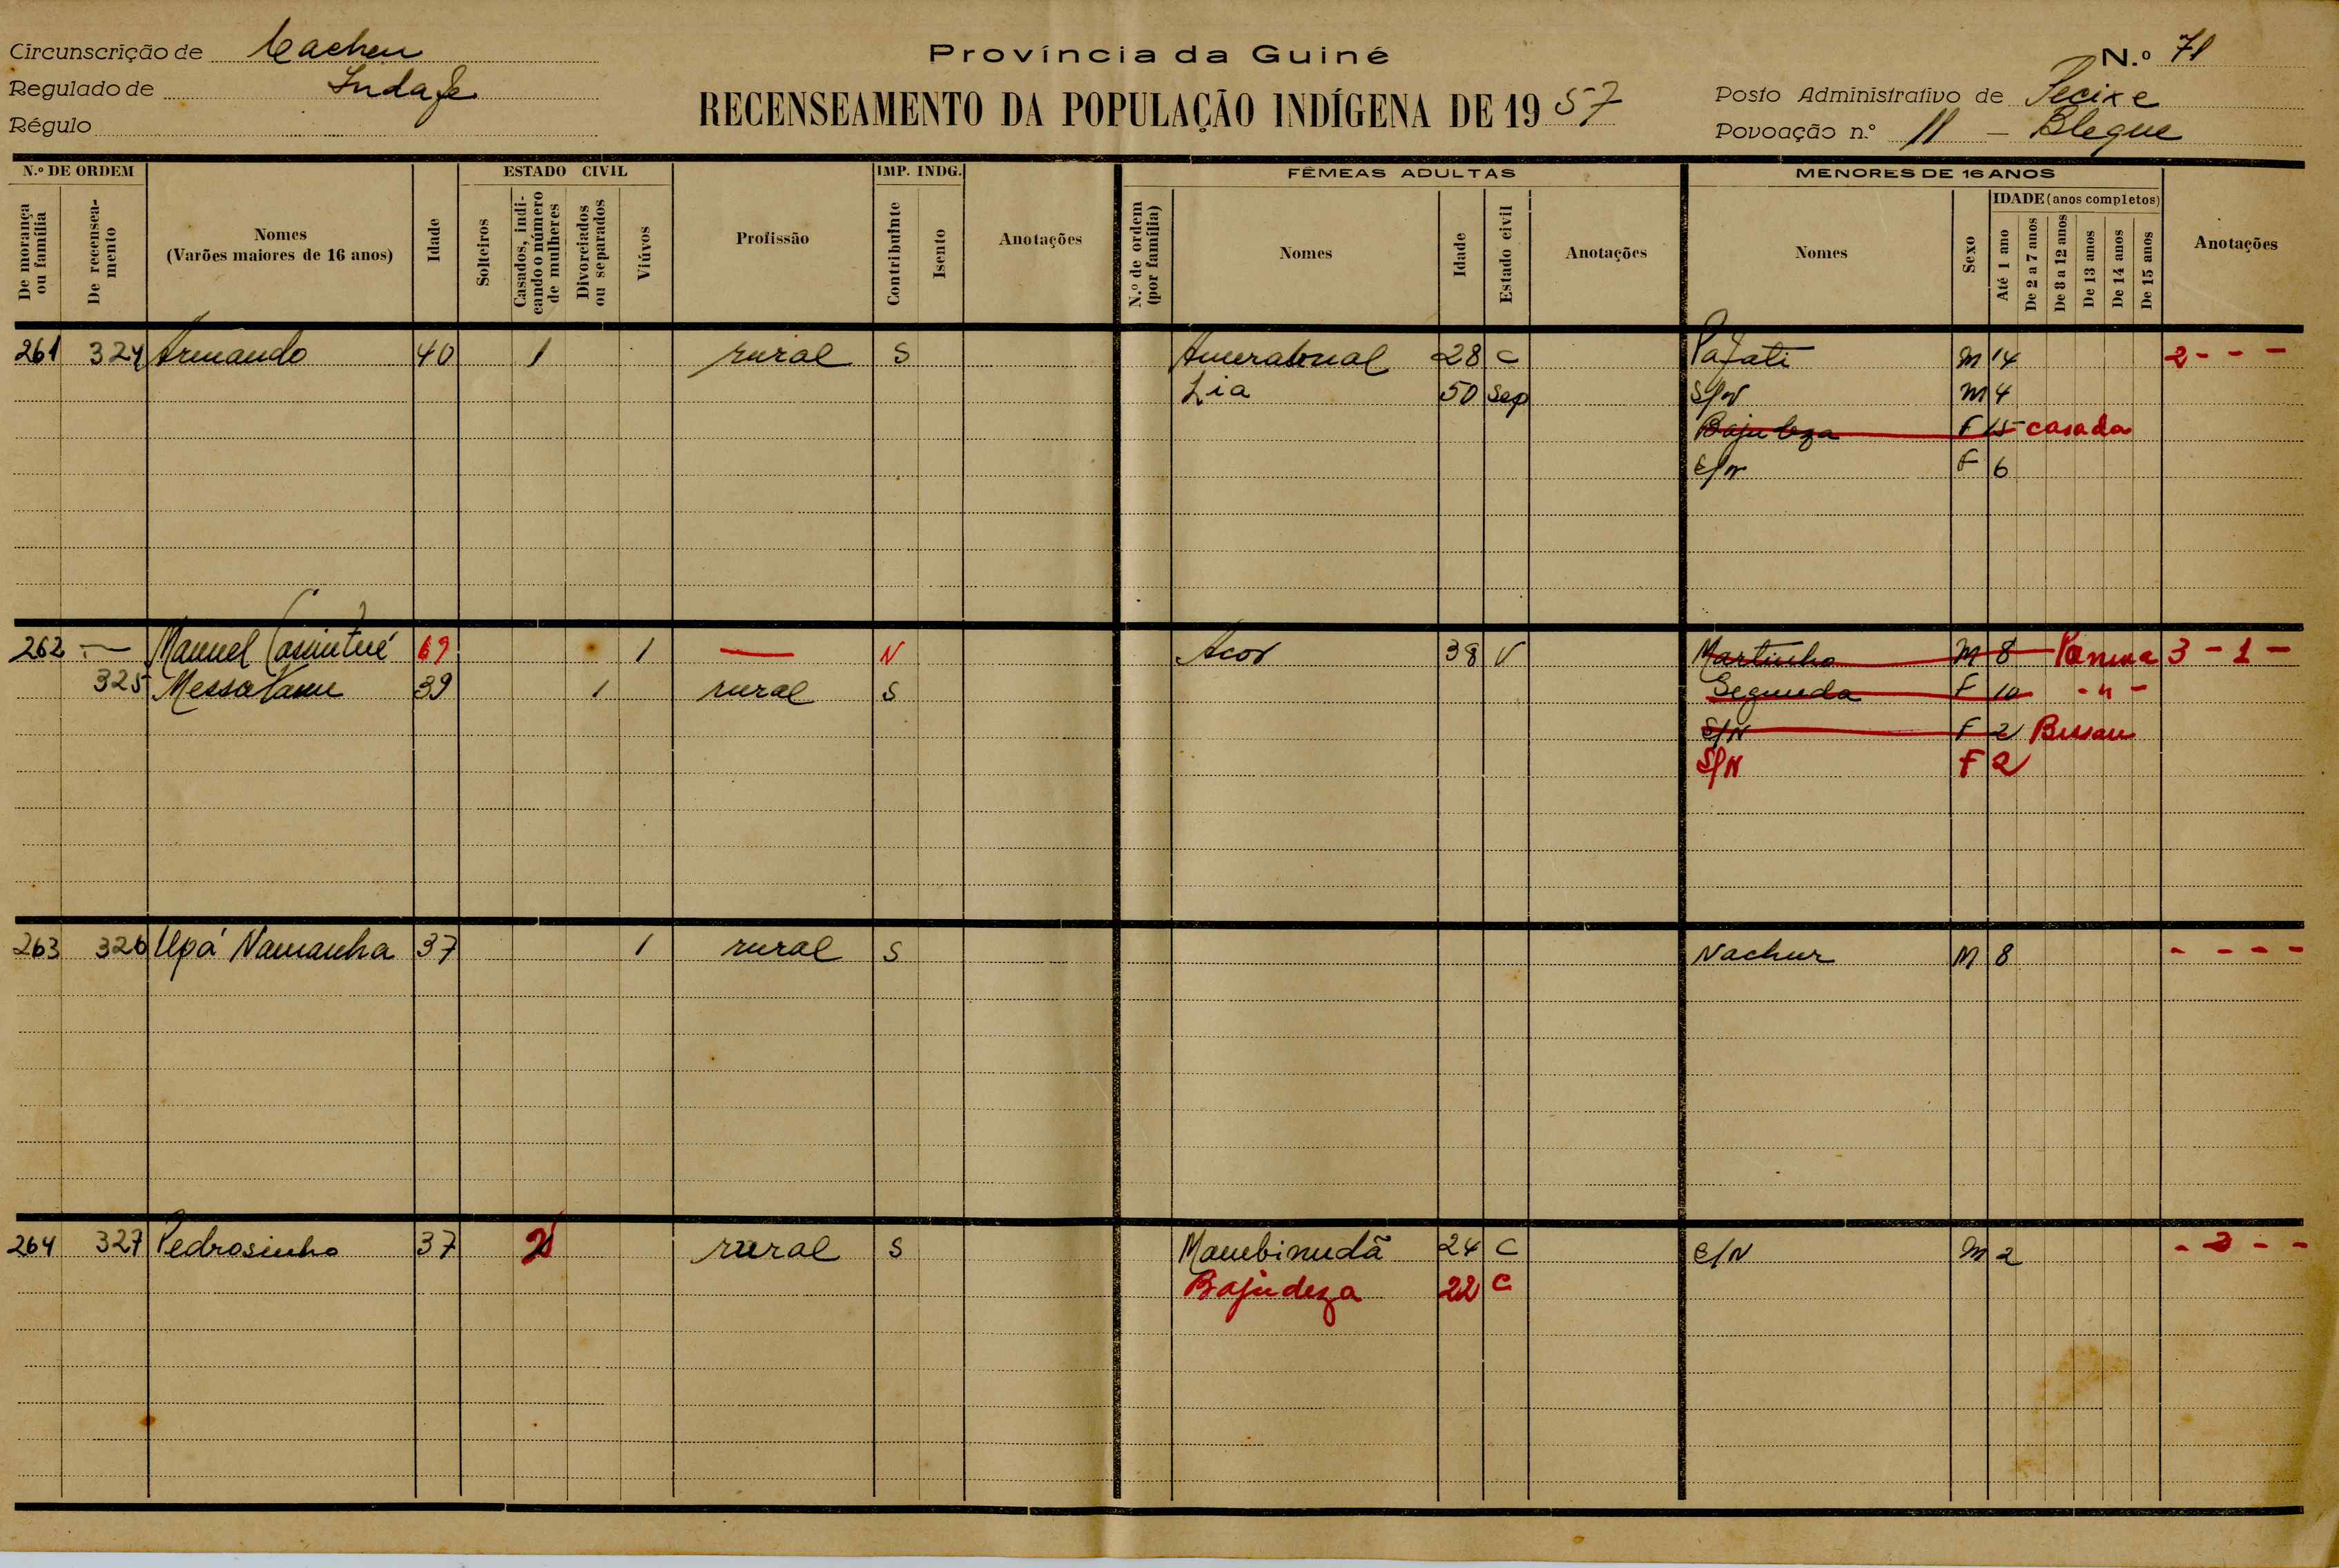 Circunscrição de Cacheu
Regulado de
Régulo
Província da Guiné
RECENSEAMENTO DA POPULAÇÃO INDÍGENA DE 1957
N.º 71
Posto Administrativo de Pecixe
Povoação n.º 11 – Blegue
N.º DE ORDEM
De morança ou família
De recenseamento
Nomes
(Varões maiores de 16 anos)
Idade
ESTADO CIVIL
Solteiros
Casados, indicando o número de mulheres
Divorciados ou separados
Viúvos
Profissão
IMP. INDG.
Contribuinte
Isento
Anotações
FÊMEAS ADULTAS
N.º de ordem (por família)
Nomes
Idade
Estado civil
Anotações
MENORES DE 16 ANOS
Nomes
Sexo
IDADE (anos completos)
Até 1 ano
De 2 a 7 anos
De 8 a 12 anos
De 13 anos
De 14 anos
De 15 anos
Anotações
261 324 Armando 40 1 rural S 28 C Pafati M 14 2 - - -
Lia 50 Sep S/N M 4
F 15 casada
S/N F 6
262 — Manuel 69 1 — N Acor 38 V Martinho M 8 3 - 1 -
325 39 1 rural S Segunda F 10 - " -
S/N F 2 Bissau
S/N F 2
263 326 Upá Namanha 37 1 rural S Nachur M 8 - - - -
264 327 Pedrosinho 37 2 rural S Mambinudã 24 C S/N M 2 - 2 - -
Bajudeza 22 C